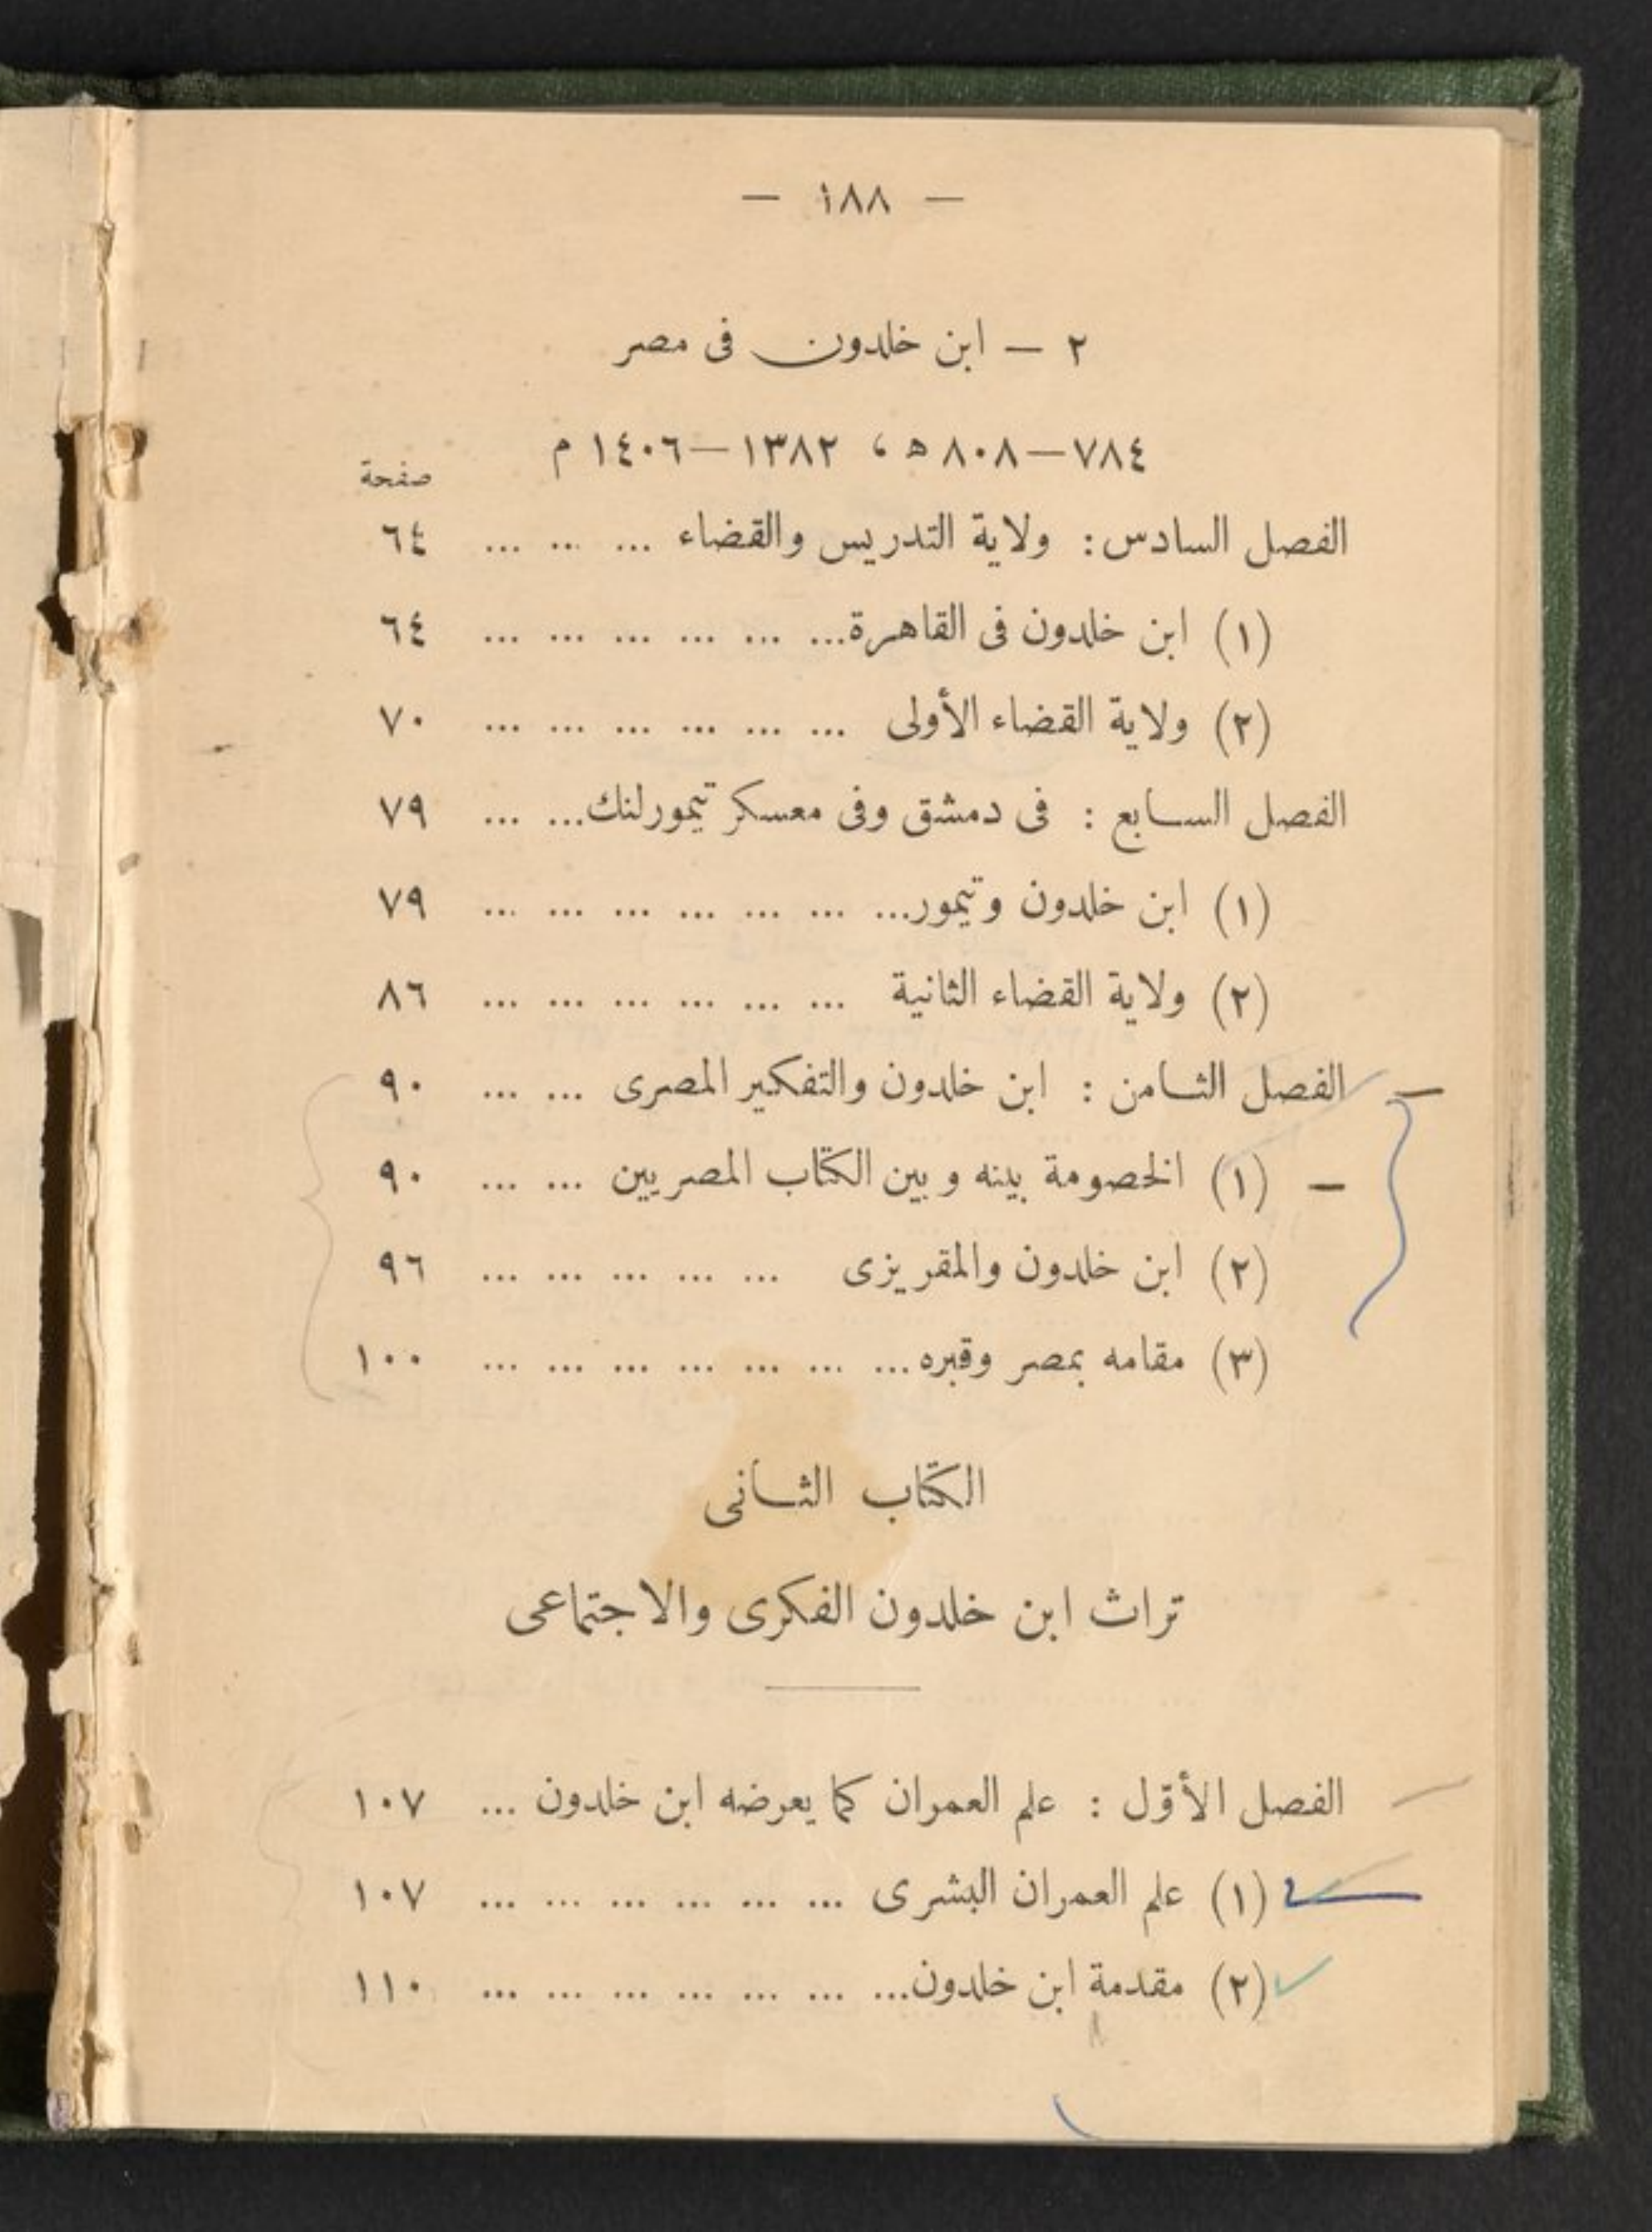 — ١٨٨ —
٢ — ابن خلدون فى مصر
٧٨٤—٨٠٨ ھ ، ١٣٨٢—١٤٠٦ م
صفحة
الفصل السادس : ولاية التدريس والقضاء ... ... ... ٦٤
(١) ابن خلدون فى القاهرة... ... ... ... ... ... ٦٤
(٢) ولاية القضاء الأولى ... ... ... ... ... ... ٧٠
الفصل السابع : فى دمشق وفى معسكر تيمورلنك... ... ٧٩
(١) ابن خلدون وتيمور... ... ... ... ... ... ... ٧٩
(٢) ولاية القضاء الثانية ... ... ... ... ... ... ٨٦
الفصل الثامن : ابن خلدون والتفكير المصرى ... ... ٩٠
(١) الخصومة بينه وبين الكتّاب المصريين ... ... ٩٠
(٢) ابن خلدون والمقريزى ... ... ... ... ... ٩٦
(٣) مقامه بمصر وقبره... ... ... ... ... ... ... ١٠٠
الكتاب الثانى
تراث ابن خلدون الفكرى والاجتماعى
الفصل الأوّل : علم العمران كما يعرضه ابن خلدون ... ١٠٧
(١) علم العمران البشرى ... ... ... ... ... ... ١٠٧
(٢) مقدمة ابن خلدون... ... ... ... ... ... ... ١١٠